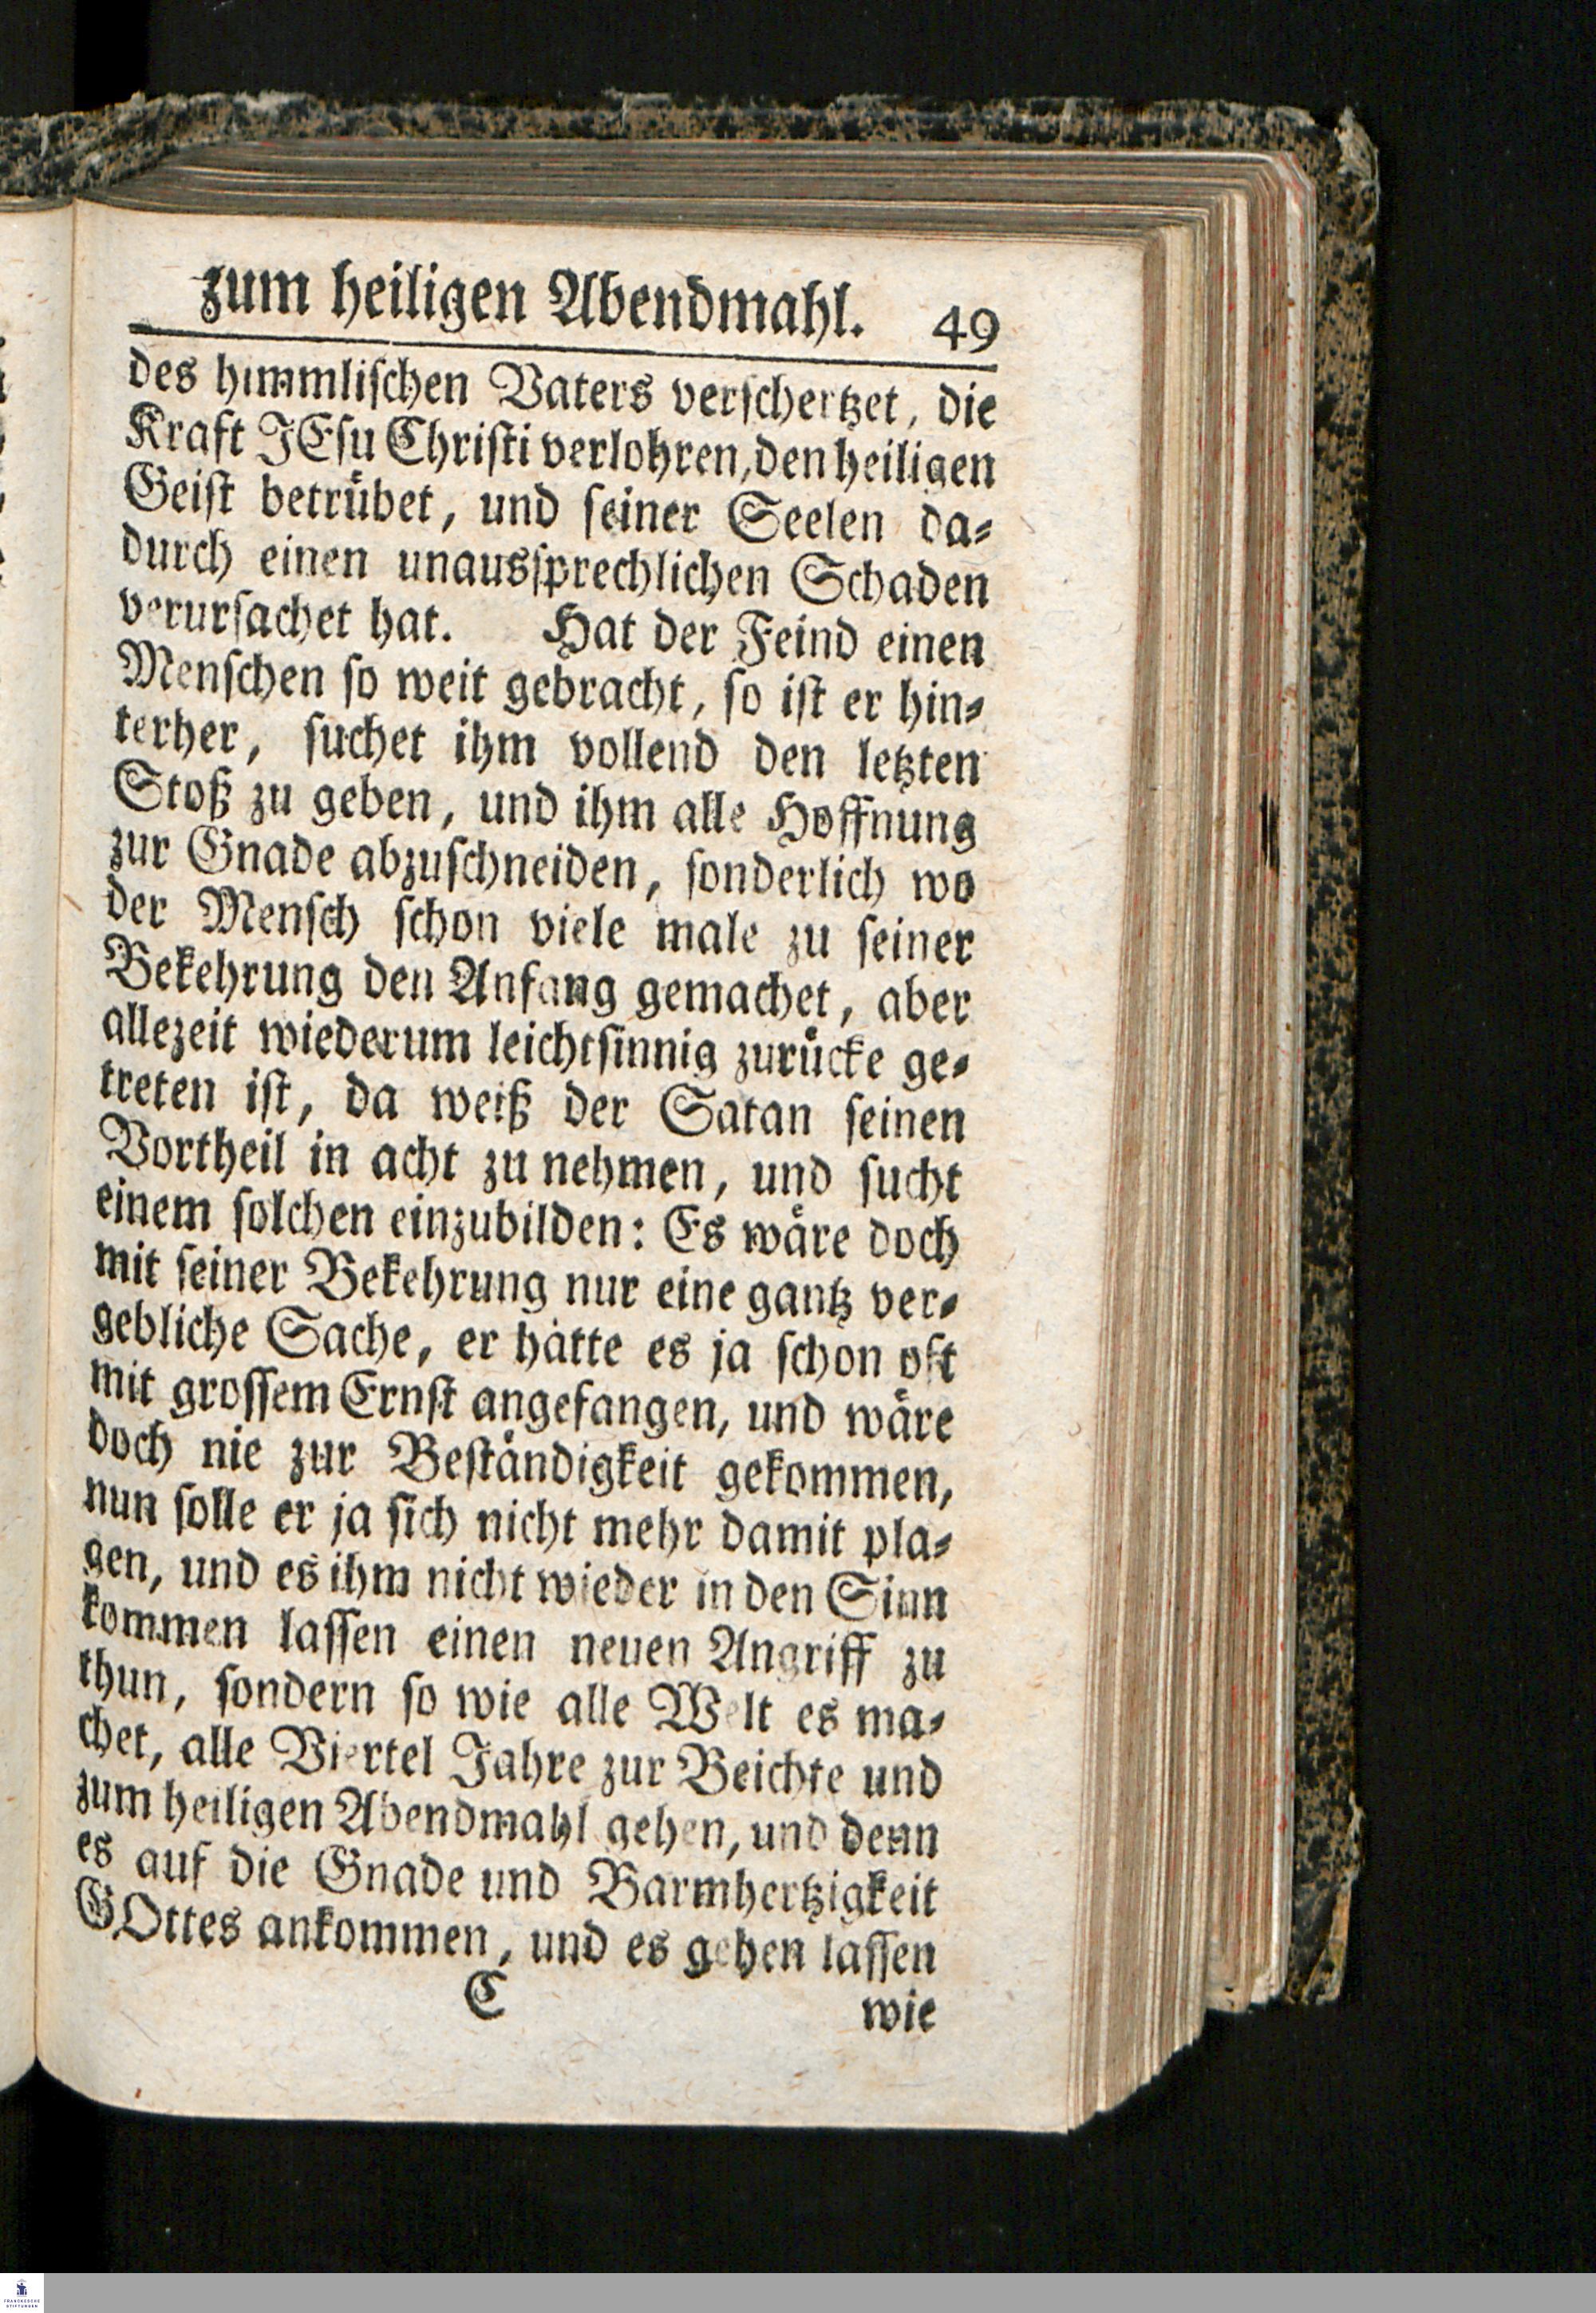 zum heiligen Abendmahl. 49
des himmlischen Vaters verschertzet, die
Kraft JEsu Christi verlohren, den heiligen
Geist betrübet, und seiner Seelen da-
durch einen unaussprechlichen Schaden
verursachet hat. Hat der Feind einen
Menschen so weit gebracht, so ist er hin-
terher, suchet ihm vollend den letzten
Stoß zu geben, und ihm alle Hoffnung
zur Gnade abzuschneiden, sonderlich wo
der Mensch schon viele male zu seiner
Bekehrung den Anfang gemachet, aber
allezeit wiederum leichtsinnig zurücke ge-
treten ist, da weiß der Satan seinen
Vortheil in acht zu nehmen, und sucht
einem solchen einzubilden: Es wäre doch
mit seiner Bekehrung nur eine gantz ver-
gebliche Sache, er hätte es ja schon oft
mit grossem Ernst angefangen, und wäre
doch nie zur Beständigkeit gekommen,
nun solle er ja sich nicht mehr damit pla-
gen, und es ihm nicht wieder in den Sinn
kommen lassen einen neuen Angriff zu
thun, sondern so wie alle Welt es ma-
chet, alle Viertel Jahre zur Beichte und
zum heiligen Abendmahl gehen, und denn
es auf die Gnade und Barmhertzigkeit
GOttes ankommen, und es gehen lassen
C wie
FRANCKESCHE
STIFTUNGEN